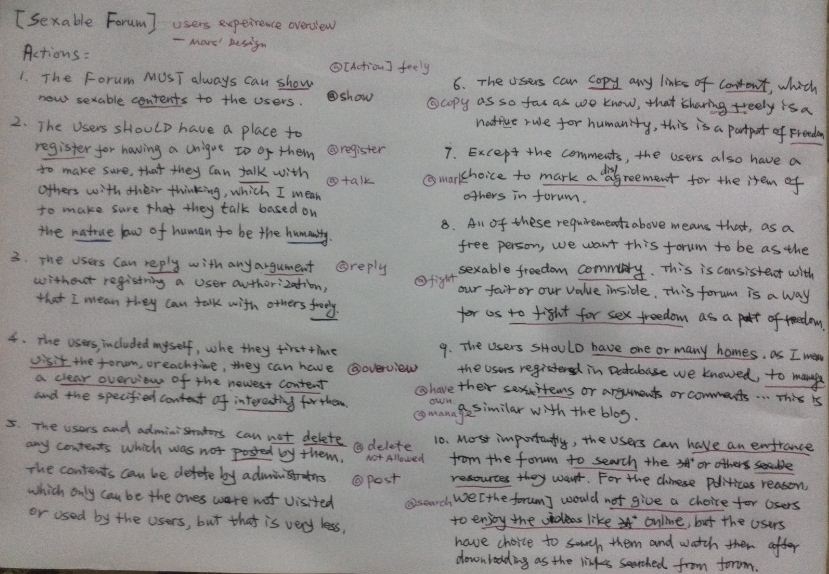 [Sexable Forum] users expeirence overview
— Mars' Design
Actions:
@[Action] feely
1. The Forum MUST always can show
new sexable contents to the users. @show
2. The users SHOULD have a place to
register for having a unique ID of them @register
to make sure, that they can talk with
others with their thinking, which I mean @talk
to make sure that they talk based on
the natrue law of human to be the humanity.
3. The users can reply with any argument @reply
without registring a user authorization,
that I mean they can talk with others freely.
4. The users, included myself, whe they first time
visit the forum, or each time, they can have @overview
a clear overview of the newest content
and the specified content of interesting for them.
5. The users and administrators can not delete
any contents which was not posted by them, @delete
Not Allowed
The contents can be delete by administrators @post
which only can be the ones were not visited
or used by the users, but that is very less,
6. The users can copy any links of content, which
@copy as so far as we know, that sharing freely is a
native rule for humanity, this is a part of Freedom
7. Except the comments, the users also have a
@mark choice to mark a dis/agreement for the item of
others in forum.
8. All of these requirements above means that, as a
free person, we want this forum to be as the
sexable freedom commnity. This is consistent with
@fight our fait or our value inside. This forum is a way
for us to fight for sex freedom as a part of freedom.
9. The users SHOULD have one or many homes, as I mean
the users registered in Database we knowed, to manage
@have their sex items or arguments or comments ... This is
own
@manage a similar with the blog.
10. Most importantly, the users can have an emtrance
from the forum to search the or others sexable
resources they want. For the chinese politicas reason,
@search we [the forum] would not give a choice for users
to enjoy the videos like online, but the users
have choice to search them and watch them after
downloading as the links searched from forum.